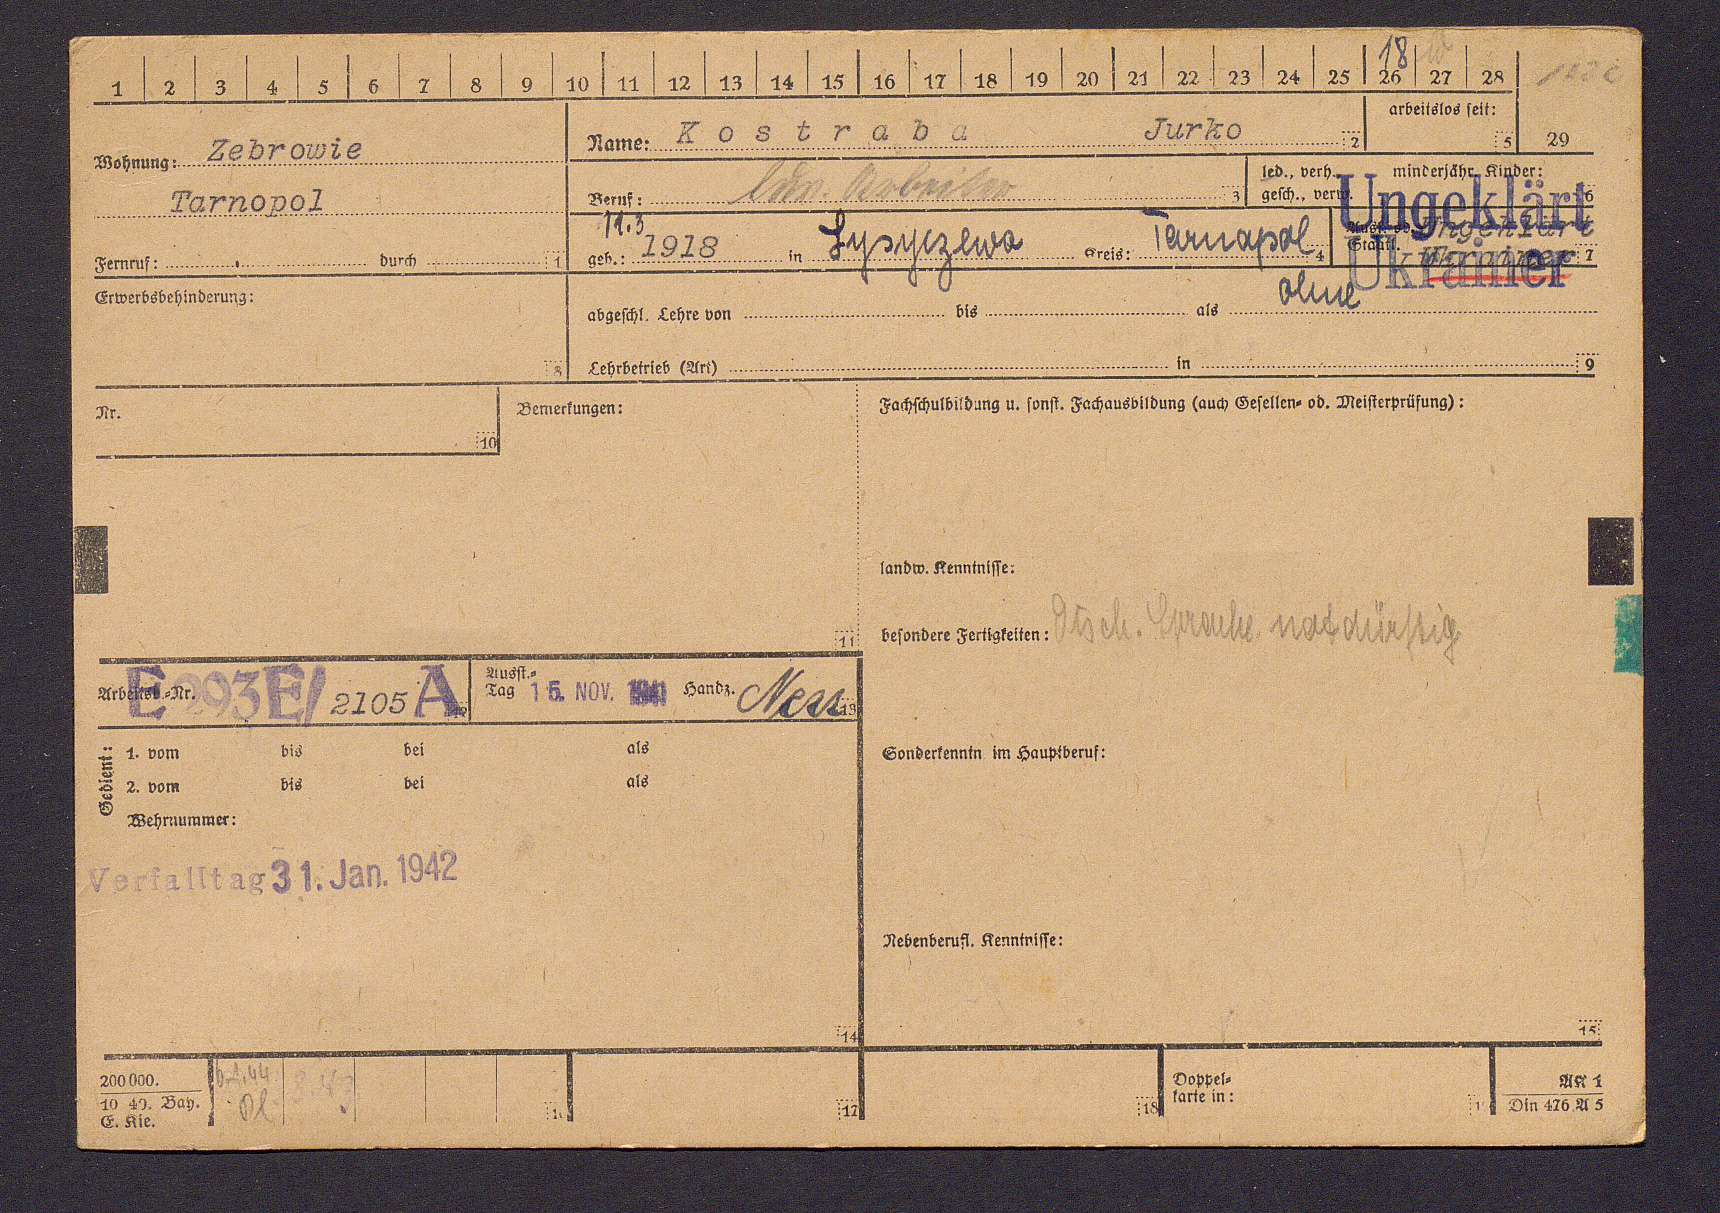 18
1 2 3 4 5 6 7 8 9 10 11 12 13 14 15 16 17 18 19 20 21 22 23 24 25 26 27 28
arbeitslos seit:
5
29
Wohnung: Zebrowie
Tarnopol
Fernruf: durch 1
Name: Kostraba Jurko 2
Beruf: ldw. Arbeiter 3
led., verh.,
gesch., verw.
minderjähr. Kinder:
6
11.3
geb.: 1918 in Lysyczewo Kreis: Tarnapol 4
Ungeklärt
Staatl. Ungeklärt
Ukrainer 7
Ukrainer
Erwerbsbehinderung:
8
ohne
abgeschl. Lehre von bis als
Lehrbetrieb (Art) in 9
Nr.
10
Bemerkungen:
11
Fachschulbildung u. sonst. Fachausbildung (auch Gesellen- od. Meisterprüfung):
landw. Kenntnisse:
besondere Fertigkeiten: Dtsch. Sprache notdürftig
Arbeitsb.-Nr. E 293E/ 2105 A 12
Ausst.-
Tag 15. NOV. 1941 Handz. 13
Gedient:
1. vom bis bei als
2. vom bis bei als
Wehrnummer:
Verfalltag 31. Jan. 1942
14
Sonderkenntn im Hauptberuf:
Nebenberufl. Kenntnisse:
15
200000.
10 40. Bay.
E. Kie.
17
18
Doppel-
karte in:
AK 1
Din 476 A 5